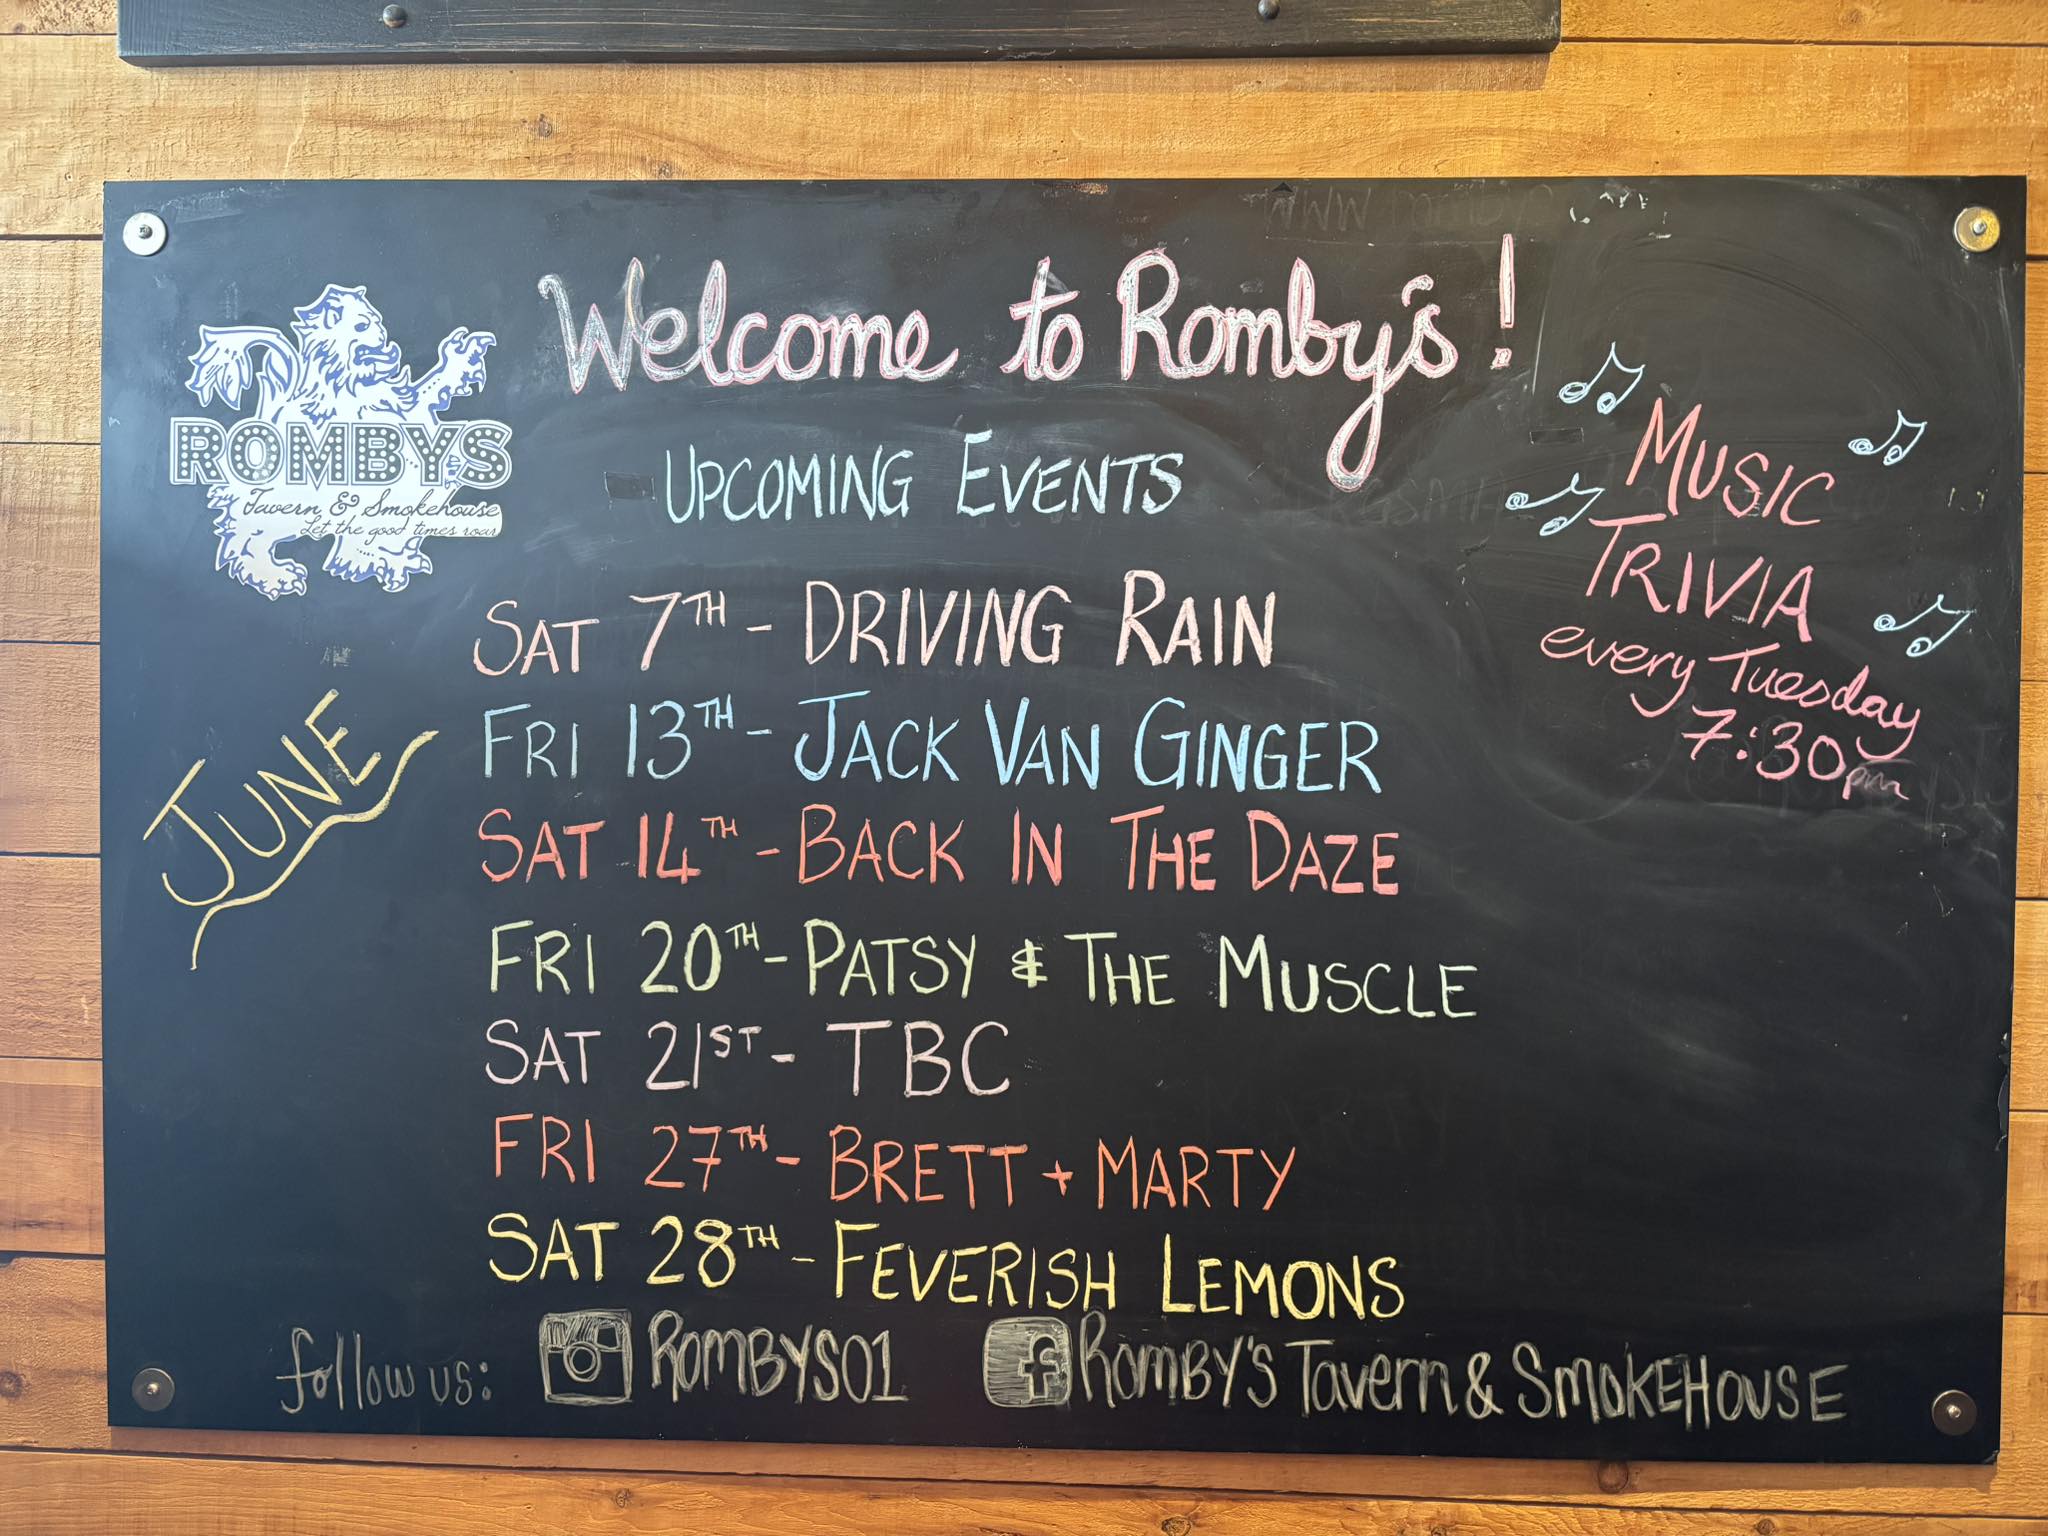 Welcome to Romby's!
ROMBYS
Tavern & Smokehouse
Let the good times roar
UPCOMING EVENTS
MUSIC
TRIVIA
every Tuesday
7:30pm
JUNE
SAT 7TH - DRIVING RAIN
FRI 13TH - JACK VAN GINGER
SAT 14TH - BACK IN THE DAZE
FRI 20TH - PATSY & THE MUSCLE
SAT 21ST - TBC
FRI 27TH - BRETT + MARTY
SAT 28TH - FEVERISH LEMONS
follow us: ROMBYS01 f ROMBY'S TAVERN & SMOKEHOUSE